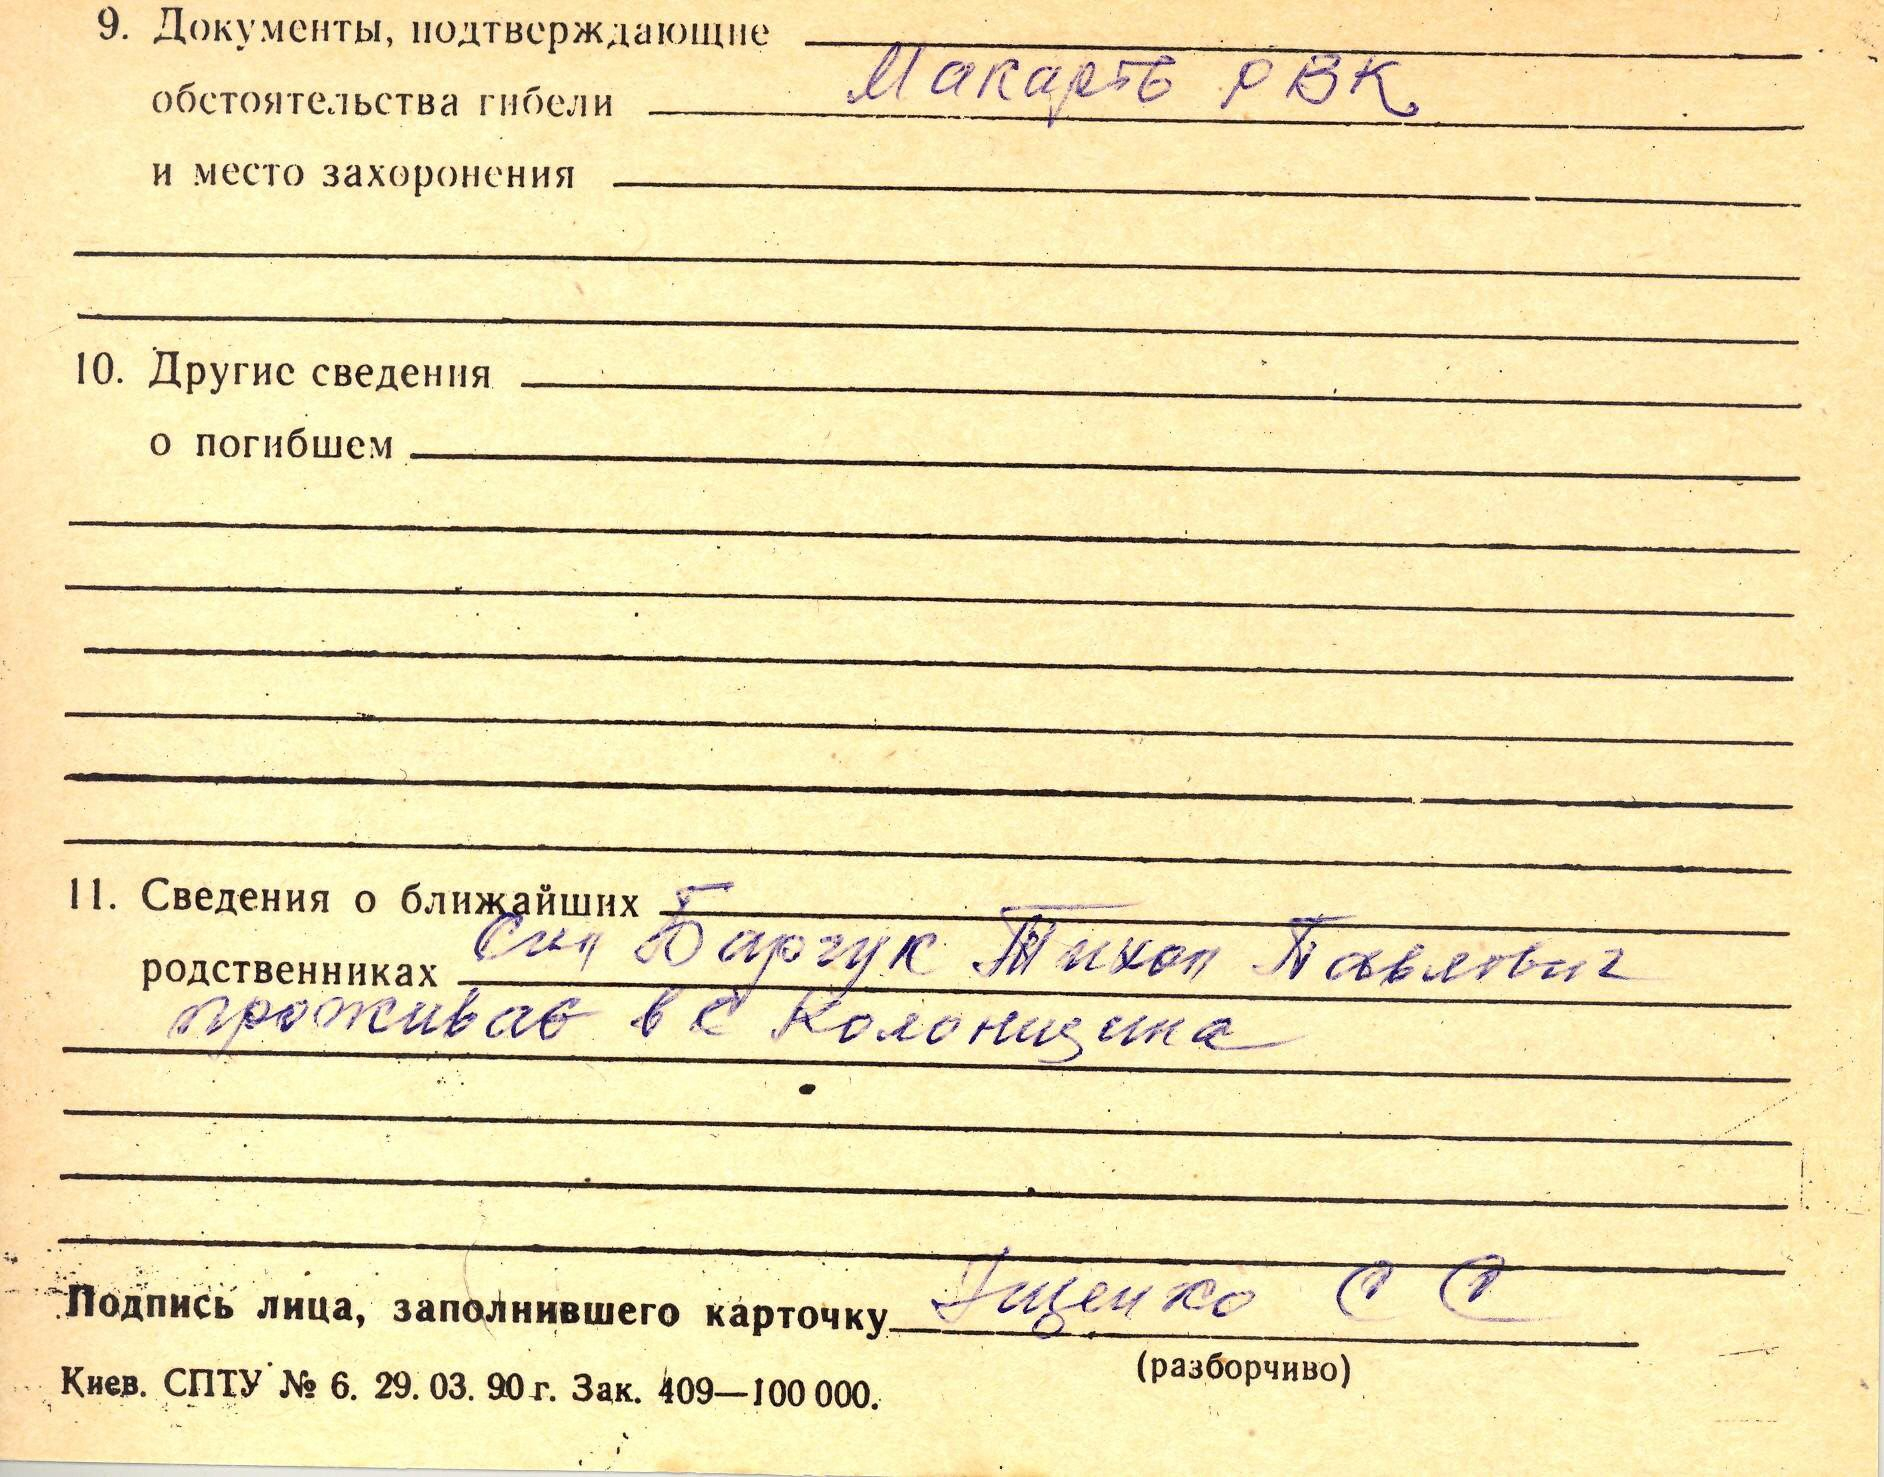 9. Документы, подтверждающие
обстоятельства гибели Макарів РВК
и место захоронения
10. Другие сведения
о погибшем
11. Сведения о ближайших
родственниках Син Барчук Тихон Павлович
проживає в с Колонщина
Подпись лица, заполнившего карточку Іщенко С С
(разборчиво)
Киев. СПТУ № 6. 29. 03. 90 г. Зак. 409—100 000.